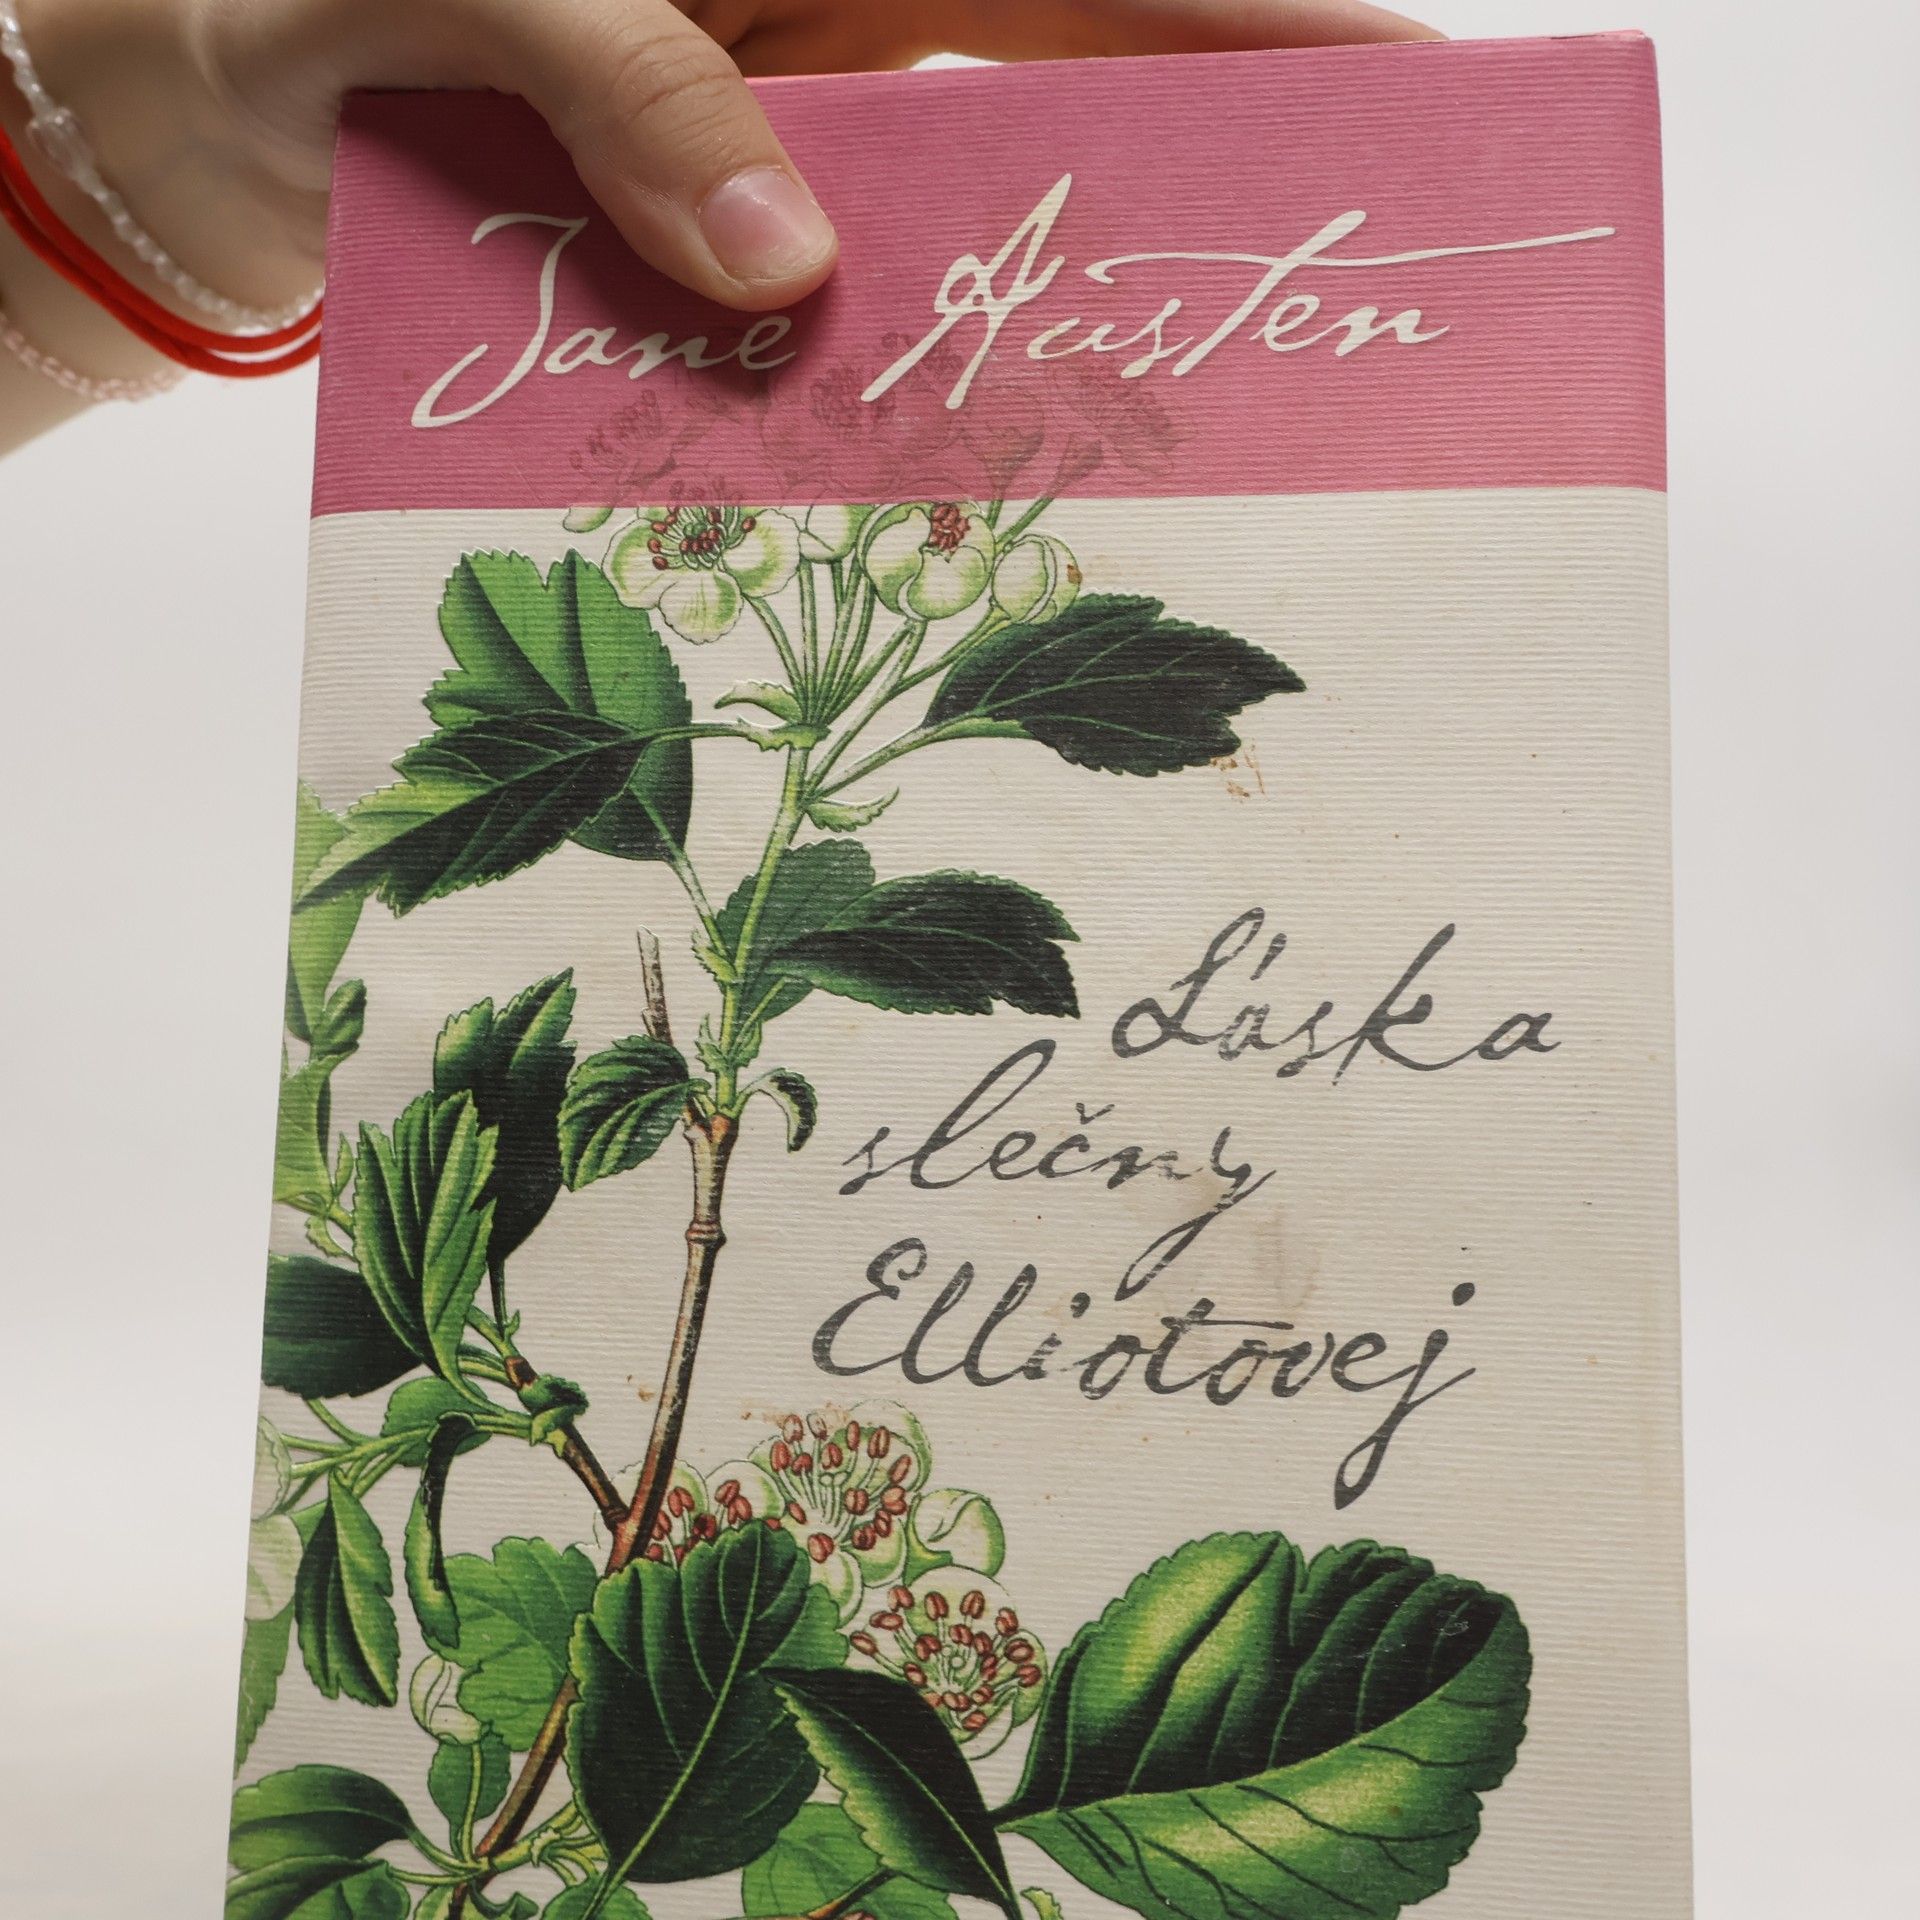 Jane Austen
Láska
slečny
Elliotovej